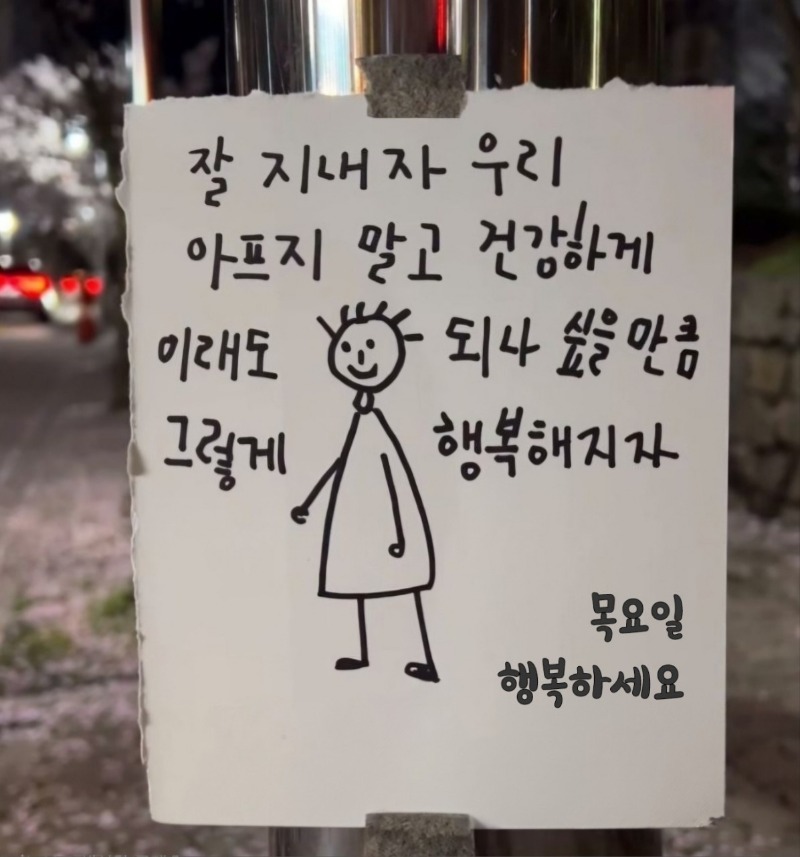 잘 지내자 우리
아프지 말고 건강하게
이래도 되나 싶을만큼
그렇게 행복해지자
목요일
행복하세요